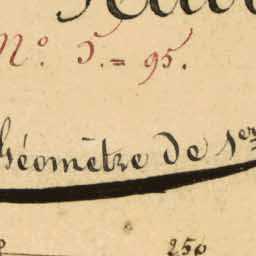 N.º 5.= 95.
Géomètre de 1er
250